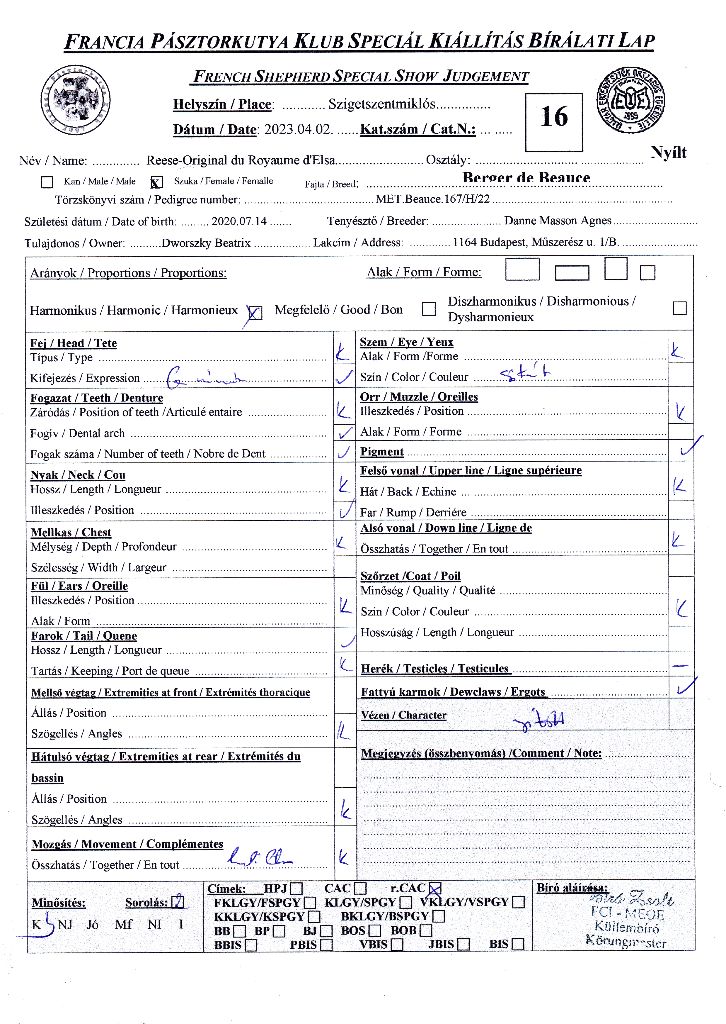 FRANCIA PÁSZTORKUTYA KLUB SPECIÁL KIÁLLÍTÁS BÍRÁLATI LAP
FRENCH SHEPHERD SPECIAL SHOW JUDGEMENT
Helyszín / Place: ............ Szigetszentmiklós...............
16
Dátum / Date: 2023.04.02. ...... Kat.szám / Cat.N.: ... ......
Nyílt
Név / Name: ............. Reese-Original du Royaume d'Elsa...................... Osztály:
Kan / Male / Male Szuka / Female / Femalle Fajta / Breed: Berger de Beauce
Törzskönyvi szám / Pedigree number: MET.Beauce.167/H/22
Születési dátum / Date of birth: ......... 2020.07.14 ....... Tenyésztő / Breeder: Danne Masson Agnes
Tulajdonos / Owner: ..........Dworszky Beatrix ............... Lakcím / Address: ......... 1164 Budapest, Műszerész u. 1/B.
Arányok / Proportions / Proportions: Alak / Form / Forme:
Harmonikus / Harmonic / Harmonieux Megfelelő / Good / Bon Diszharmonikus / Disharmonious / Dysharmonieux
Fej / Head / Tete
Típus / Type K
Kifejezés / Expression
Fogazat / Teeth / Denture
Záródás / Position of teeth /Articulé entaire K
Fogív / Dental arch
Fogak száma / Number of teeth / Nobre de Dent
Nyak / Neck / Cou
Hossz / Length / Longueur K
Illeszkedés / Position
Mellkas / Chest
Mélység / Depth / Profondeur K
Szélesség / Width / Largeur
Fül / Ears / Oreille
Illeszkedés / Position K
Alak / Form
Farok / Tail / Quene
Hossz / Length / Longueur
Tartás / Keeping / Port de queue K
Mellső végtag / Extremities at front / Extrémités thoracique
Állás / Position
Szögellés / Angles K
Hátulsó végtag / Extremities at rear / Extrémités du
bassin
Állás / Position
Szögellés / Angles K
Mozgás / Movement / Complémentes
Összhatás / Together / En tout K
Szem / Eye / Yeux
Alak / Form /Forme K
Szín / Color / Couleur sötét
Orr / Muzzle / Oreilles
Illeszkedés / Position K
Alak / Form / Forme
Pigment
Felső vonal / Upper line / Ligne supérieure
Hát / Back / Echine K
Far / Rump / Derriére
Alsó vonal / Down line / Ligne de
Összhatás / Together / En tout K
Szőrzet /Coat / Poil
Minőség / Quality / Qualité
Szín / Color / Couleur K
Hosszúság / Length / Longueur
Herék / Testicles / Testicules –
Fattyú karmok / Dewclaws / Ergots
Vézen / Character
Megjegyzés (összbenyomás) /Comment / Note:
Minősítés: Sorolás: 2
K NJ Jó Mf NI I
Címek: HPJ CAC r.CAC
FKLGY/FSPGY KLGY/SPGY VKLGY/VSPGY
KKLGY/KSPGY BKLGY/BSPGY
BB BP BJ BOS BOB
BBIS PBIS VBIS JBIS BIS
Bíró aláírása:
FCI - MEOE
Küllembíró
Körungmester